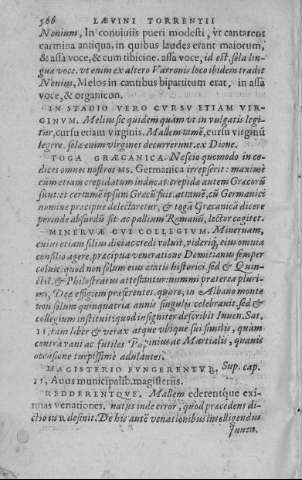 566 LÆVINI TORRENTII
Nonium, In conuiuiis pueri modesti, vt cantarent
carmina antiqua, in quibus laudes erant maiorum,
& assa voce, & cum tibicine. assa voce, id est, sola lin-
gua voce. vt enim ex altero Varronis loco ibidem tradit
Nonius, Melos in cantibus bipartitum erat, in assa
voce, & organicon.
IN STADIO VERO CVRSV ETIAM VIR-
GINVM. Melius sic quidem quàm vt in vulgatis legi-
tur, cursu etiam virginis. Mallem tamē, cursu virginū
legere. sola enim virgines decurrerunt. ex Dione.
TOGA GRÆCANICA. Nescio quomodo in co-
dices omnes nostros MS. Germanica irrepserit: maximè
cùm etiam crepidatum indicat. crepida autem Græcorū
sunt. &
nomine præcipuè delectaretur, & togā Græcanicā dicere
perinde absurdū sit ac pallium Romanū, lector cogitet.
MINERVÆ CVI COLLEGIVM. Mineruam,
cuius etiam filium dici ac credi voluit, viderīq, eius omnia
consilio agere, præcipua veneratione Domitianus semper
coluit: quod non solum eius ætatis historici, sed & Quin-
ctil. & Philostratus attestantur. nummi præterea pluri-
mi, Deæ effigiem præferentes. quare, in Albano monte
non solum quinquatria annis singulis celebrauit, sed &
collegium instituit: quod insigniter describit Iuuen. Sat.
11, tam liber & verax atque vbique sui similis, quàm
contrà vani ac futiles Papinius ac Martialis, quauis
occasione turpissimè adulantes.
MAGISTERIO FVNGERENTVR, Sup. cap.
Auus municipalib. magisteriis.
REDDERENTQVE. Mallem ederentque exi-
mias venationes. natus inde error, quòd præcedens di-
ctio in r. desinit. De his autē venationibus intelligendus
Iunio.